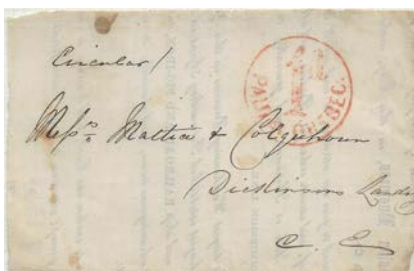 Circular/
PAID 1d QUEBEC.
Messrs Mattice & Colquhoun
Dickinsons Landing
C. E